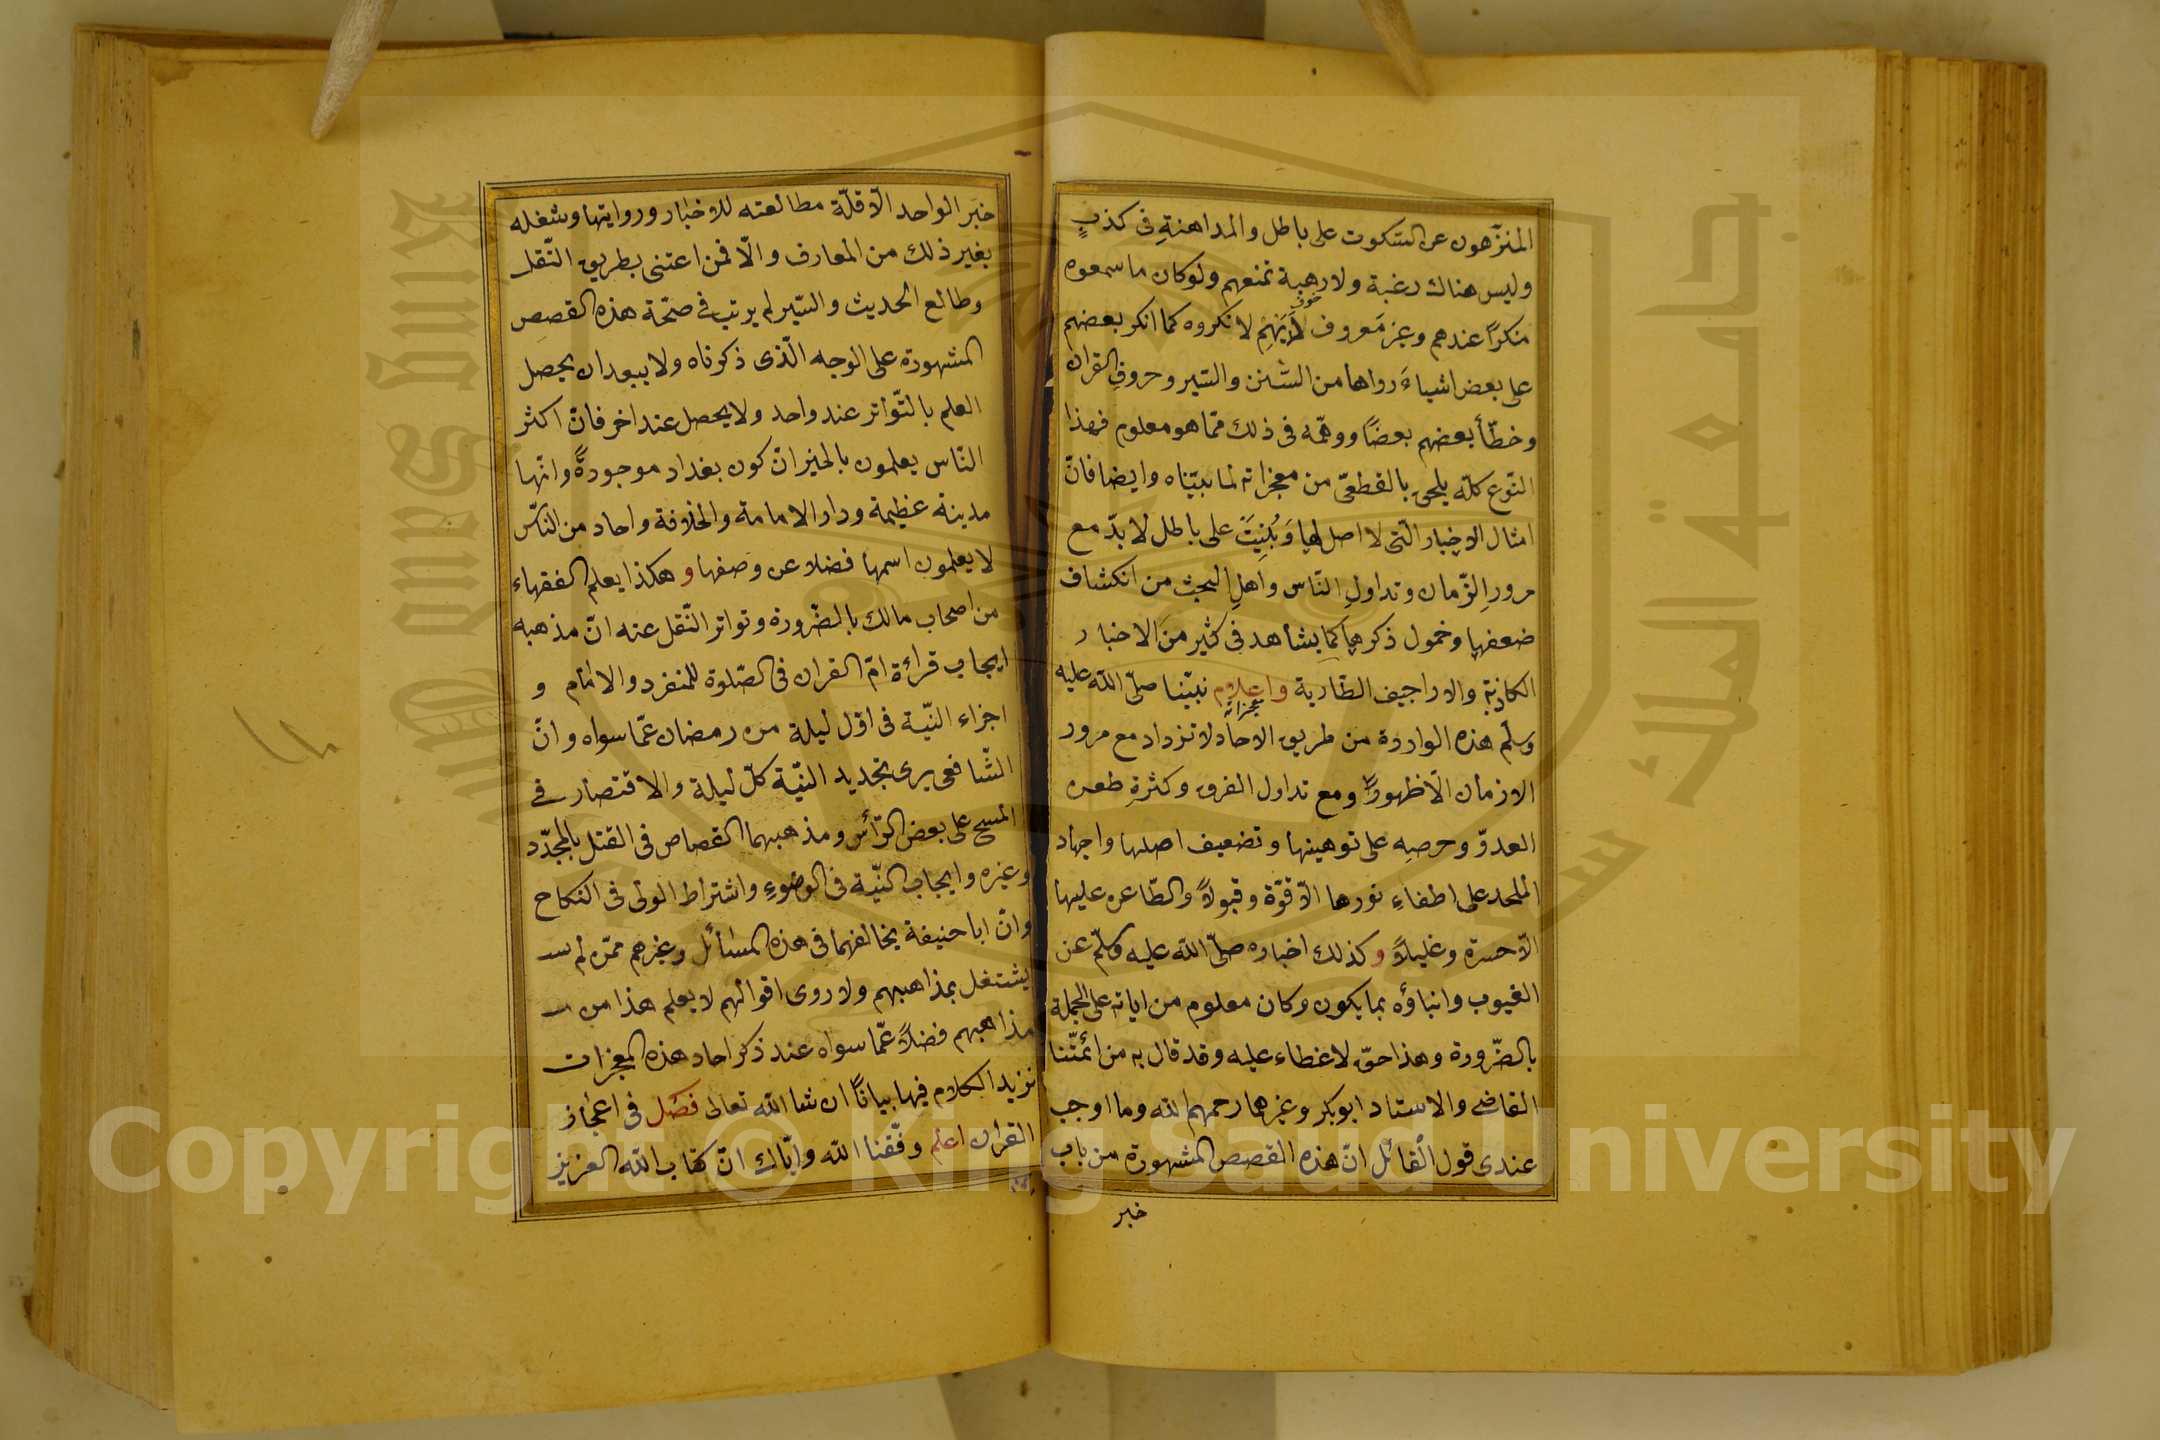 المنزّهون عن السّكوت على باطل والمداهنةِ فى كذبٍ
وليس هناك رغبة ولا رهبة تمنعهم ولو كان ما سمعوه
منكرًا عندهم وغير مَعروف لَدَيْهِم لانكروه كما انكر بعضهم
على بعض اشياءَ رواها من السّنن والسّير وحروفِ القران
وخطّأ بعضهم بعضًا ووهّمه فى ذلك ممّا هو معلوم فهذا
النّوع كلّه يلحق بالقطعىّ من معجزاته لما بيّنّاه وايضا فانّ
امثال الاخبار الّتى لا اصل لها وَبُنِيَتْ على باطل لا بدّ مع
مرورِ الزّمان وتداولِ النّاس واهلِ البحث من انكشاف
ضعفها وخمول ذكرها كما يشاهد فى كثير منَ الاخبار
الكاذبة والاراجيف الطّارية واعلام نبيّنا صلّى اللّه عليه
وسلّم هذه الواردة من طريق الاحاد لا تزداد مع مرور
الازمان الّا ظهورًا ومع تداول الفرق وكثرةِ طعن
العدوّ وحرصِه على توهينها وتضعيف اصلها واجهاد
الملحد على اطفاءِ نورها الّا قوّة وقبولاً والطّاعن عليها
الّا حسرة وغليلاً وكذلك اخباره صلّى اللّه عليه وسلّم عن
الغيوب وانباؤه بما يكون وكان معلوم من اياته على الجملة
بالضّرورة وهذا حقّ لا غطاء عليه وقد قال به من ائمّتنا
القاضى والاستاد ابو بكر وغيرهما رحمهم اللّه وما اوجب
عندى قول القائل انّ هذه القصص المشهورة من باب
خبر
خبَر الواحد الّا قلّة مطالعته للاخبار وروايتها وشغله
بغير ذلك من المعارف والّا فمن اعتنى بطريق النّقل
وطالع الحديث والسّير لم يرتب فى صحّة هذه القصص
المشهورة على الوجه الّذى ذكرناه ولا يبعد ان يحصل
العلم بالتّواتر عند واحد ولا يحصل عند اخر فانّ اكثر
النّاس يعلمون بالخبر انّ كون بغداد موجودةً وانّها
مدينة عظيمة ودار الامامة والخلافة واحاد من النّاس
لا يعلمون اسمها فضلا عن وصفها وهكذا يعلم الفقهاء
من اصحاب مالك بالضّرورة وتواتر النّقل عنه انّ مذهبه
ايجاب قراءة امّ القران فى الصّلوة للمنفرد والامام و
اجزاء النيّة فى اوّل ليلة من رمضان عمّا سواه وانّ
الشّافعى يرى تجديد النيّة كلّ ليلة والاقتصار فى
المسح على بعض الرّأس ومذهبهما القصاص فى القتل بالمحدّد
وغيره وايجاب النّيّة فى الوضوءِ واشتراط الولى فى النكاح
وانّ ابا حنيفة يخالفهما فى هذه المسائل وغيرهم ممّن لم
يشتغل بمذاهبهم ولا روى اقوالهم لا يعلم هذا من
مذاهبهم فضلاً عمّا سواه عند ذكر احاد هذه المعجزات
نزيد الكلام فيها بيانًا ان شا اللّه تعالى فصل فى اعجاز
القران اعلم وفّقنا اللّه وايّاك انّ كتاب اللّه العزيز
Copyright © King Saud University